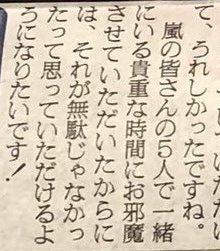 て、うれしかったですね。
嵐の皆さんの5人で一緒
にいる貴重な時間にお邪魔
させていただいたからに
は、それが無駄じゃなかっ
たって思っていただけるよ
うになりたいです！